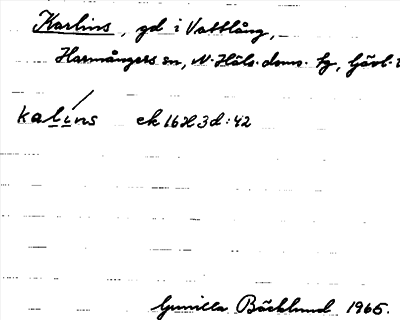 Karlins, gd i Vattlång,
Harmångers sn, N. Häls. doms. tg, Gävl. l
kalins ek 16H3d:42
Gunilla Bäcklund 1965.